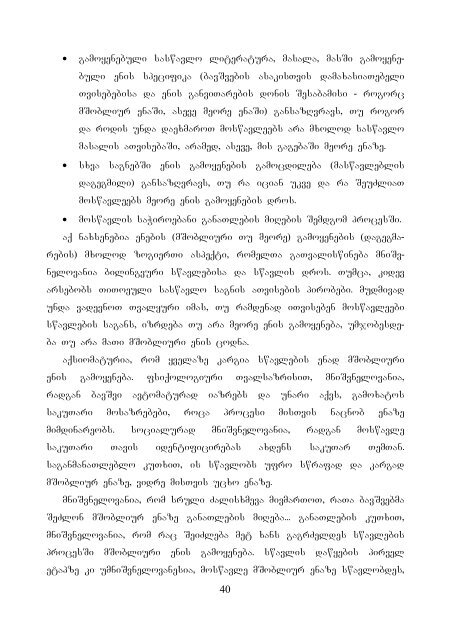 • გამოყენებული სასწავლო ლიტერატურა, მასალა, მასში გამოყენე-
ბული ენის სპეციფიკა (ბავშვების ასაკისთვის დამახასიათებელი
თვისებებისა და ენის განვითარების დონის შესაბამისი - როგორც
მშობლიურ ენაში, ასევე მეორე ენაში) განსაზღვრავს, თუ როგორ
და როდის უნდა დაეხმაროთ მოსწავლეებს არა მხოლოდ სასწავლო
მასალის ათვისებაში, არამედ, ასევე, მის გაგებაში მეორე ენაზე.
• სხვა საგნებში ენის გამოყენების გამოცდილება (მასწავლებლის
დაგეგმილი) განსაზღვრავს, თუ რა იციან უკვე და რა შეუძლიათ
მოსწავლეებს მეორე ენის გამოყენების დროს.
• მოსწავლის საჭიროებანი განათლების მიღების შემდგომ პროცესში.
აქ ნახსენებია ენების (მშობლიური თუ მეორე) გამოყენების (დაგეგმა-
რების) მხოლოდ ზოგიერთი ასპექტი, რომელთა გათვალისწინება მნიშვ-
ნელოვანია ბილინგვური სწავლებისა და სწავლის დროს. თუმცა, კიდევ
არსებობს თითოეული სასწავლო საგნის ათვისების პირობები. მუდმივად
უნდა ვადევნოთ თვალყური იმას, თუ რამდენად ითვისებენ მოსწავლეები
სწავლების საგანს, იზრდება თუ არა მეორე ენის გამოყენება, უმჯობესდე-
ბა თუ არა მათი მშობლიური ენის ცოდნა.
აქსიომატურია, რომ ყველაზე კარგია სწავლების ენად მშობლიური
ენის გამოყენება. ფსიქოლოგიური თვალსაზრისით, მნიშვნელოვანია,
რადგან ბავშვი ავტომატურად იაზრებს და უნარი აქვს, გამოხატოს
საკუთარი მოსაზრებები, როცა პროცესი მისთვის ნაცნობ ენაზე
მიმდინარეობს. სოციალურად მნიშვნელოვანია, რადგან მოსწავლე
საკუთარი თავის იდენტიფიცირებას ახდენს საკუთარ თემთან.
საგანმანათლებლო კუთხით, ის სწავლობს უფრო სწრაფად და კარგად
მშობლიურ ენაზე, ვიდრე მისთვის უცხო ენაზე.
მნიშვნელოვანია, რომ სრული ძალისხმევა მივმართოთ, რათა ბავშვებმა
შეძლონ მშობლიურ ენაზე განათლების მიღება... განათლების კუთხით,
მნიშვნელოვანია, რომ რაც შეიძლება მეტ ხანს გაგრძელდეს სწავლების
პროცესში მშობლიური ენის გამოყენება. სწავლის დაწყების პირველ
ეტაპზე კი უმნიშვნელოვანესია, მოსწავლე მშობლიურ ენაზე სწავლობდეს,
40